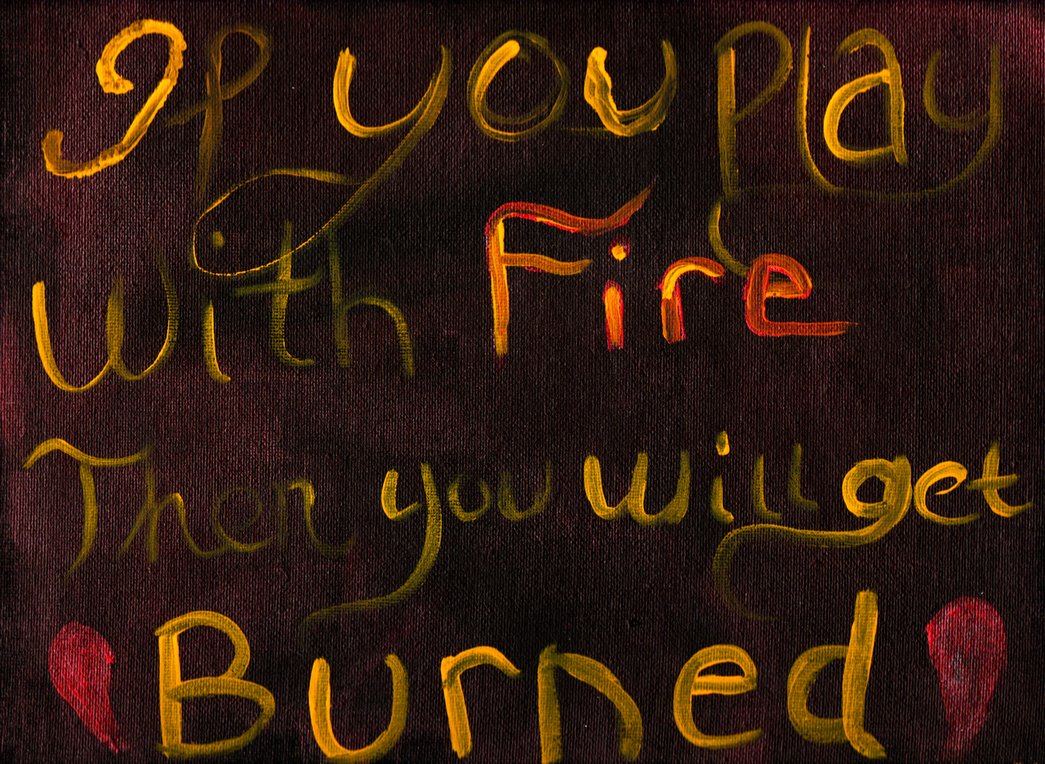 If you play
with Fire
Then you will get
Burned